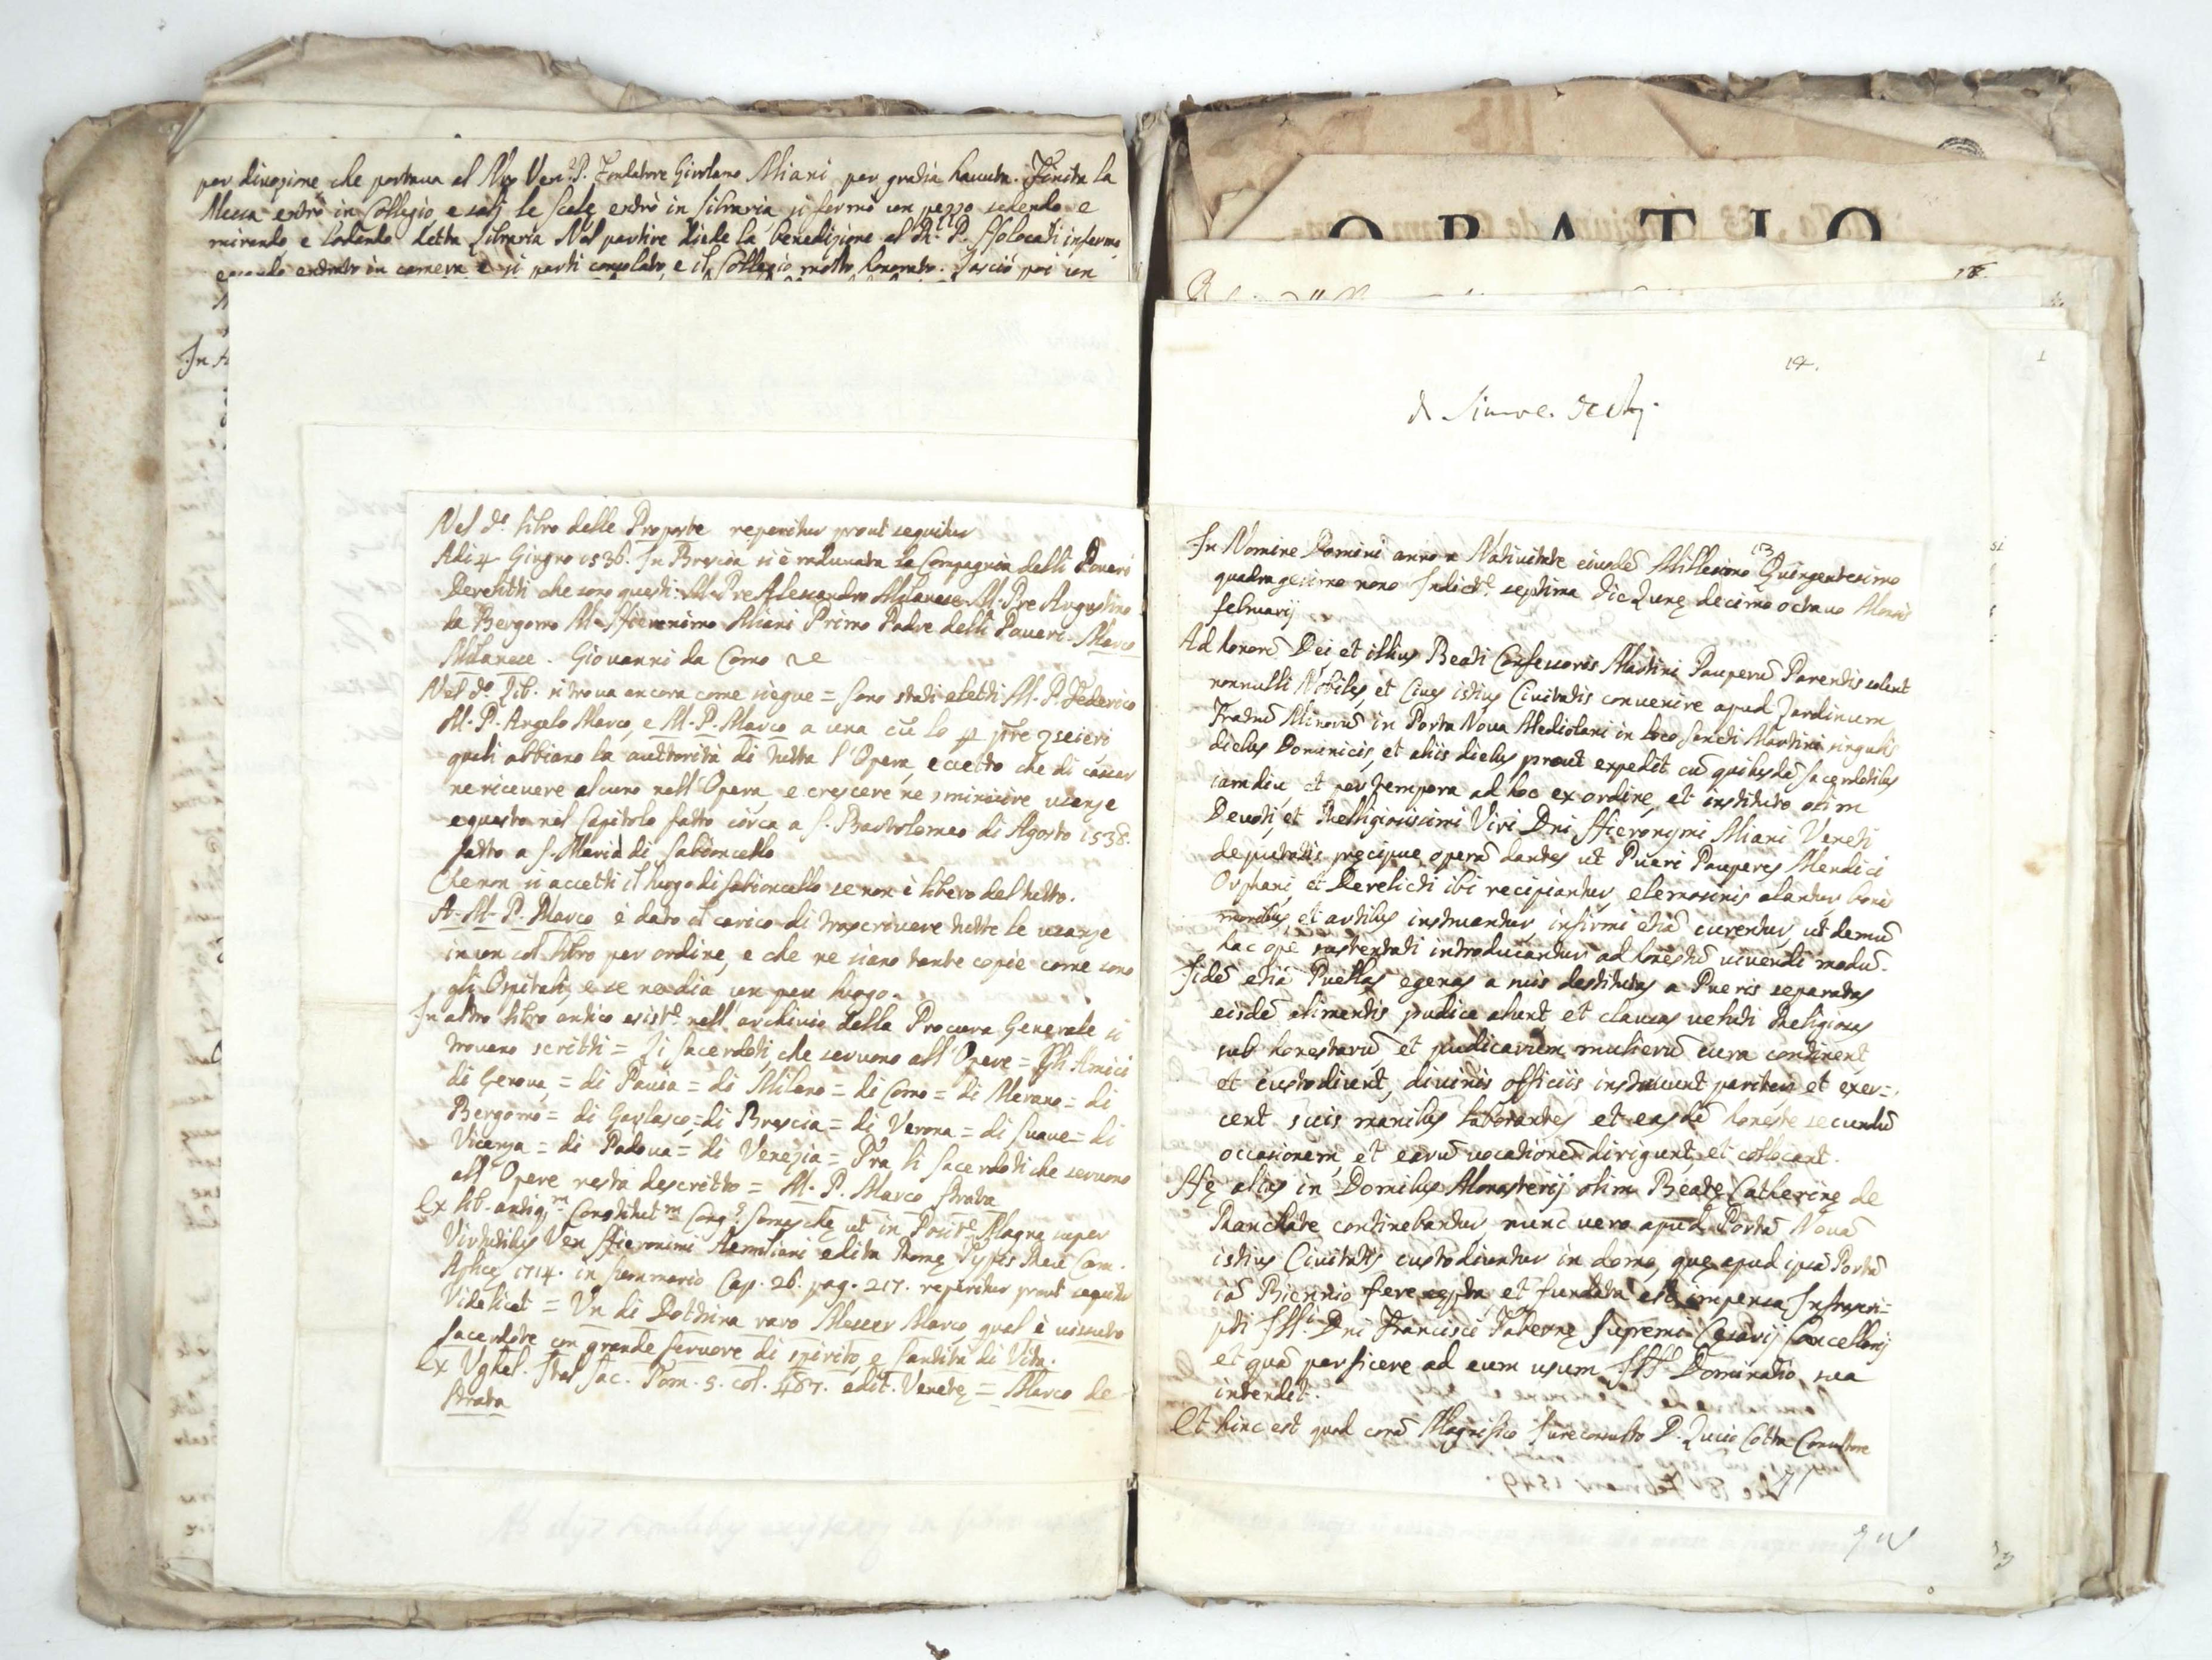 per divozione che portava al Nro Ven. P. Fondatore Girolamo Miani per gratia havuta. Finita la
Messa entrò in Collegio, e salj le scale entrò in libraria si fermò un pezzo sedendo e
mirando e lodando detta Libraria. Nel partire diede la benedizione al M. R. P. infermo
essendo entrato in camera e si partì consolato, e il Collegio molto honorato. Lasciò poi un
In
Nel do. libro delle Proposte reperitur prout sequitur
Adi 4 Giugno 1536. In Brescia si è radunata la Compagnia delli Poveri
Derelitti che sono questi: M. Pre Alessandro Milanese M. Pre Augustino
da Bergomo M. Hieronimo Miani Primo Padre delli Poveri. Marco
Milanese. Giovanni da Como
Nel do. Lib. si trova ancora come siegue = Sono stati eletti M. P. Federico
M. P. Angelo Marco, e M. P. Marco a una cū lo
quali abbiano la auttorità di tutta l'Opera, eccetto che di cacciar
ne ricevere alcuno nell'Opera, e crescere ne sminuire usanze
e questo nel Capitolo fatto circa a S. Bartolomeo di Agosto 1538.
fatto a S. Maria di Sabioncello
Che non si accetti il luogo di Sabioncello se non è libero del tutto.
A. M. P. Marco è dato il carico di trascrivere tutte le usanze
in un sol libro per ordine, e che ne siano tante copie come sono
gli Ospitali, e se ne dia un per luogo.
In altro libro antico esiste. nell'archivio della Procura Generale si
trovano scritti = Li Sacerdoti che servono all'Opere = Gli Amici
di Genova = di Pavia = di Milano = di Como = di Merano = di
Bergomo = di Garlasco = di Brescia = di Verona = di Suave = di
Vicenza = di Padova = di Venezia = Tra li Sacerdoti che servono
all'Opere resta descritto = M. P. Marco Strata
Ex lib. antiq.m Constitut.m Cong. Somaschę ut in Posit.e Magna super
Virtutibus Ven. Hieronimi Aemiliani edita Romę Typis Rev. Cam.
Aplicę 1714. in summario Cap. 26. pag. 217. reperitur prout sequitur
Videlicet = Un di Dottrina raro Messer Marco, qual è vissuto
Sacerdote con grande fervore di spirito, e santità di Vita.
Ex Ughel. Ital. Sac. Tom. 5. col. 487. edit. Venetę = Marco de
Strata
O R A T I O
14.
In Nomine Domini anno a Nativitate eiusdē Millesimo Quingentesimo
quadragesimo nono Indict.e septima die Lunę decimo octavo Mensis
februarij
Ad honorē Dei et illius Beati Confessoris Martini Pauperū Parentis solent
nonnulli Nobiles, et Cives istius Civitatis convenire apud Jardinum
Fratrū Minorū in Porta Nova Mediolani in loco Sancti Martini singulis
diebus Dominicis, et aliis diebus prout expedit cū quibusdā Sacerdotibus
iamdiu, et per tempora ad hoc ex ordine, et instituto olim
Devoti, et Relligiosissimi Viri Dni Hieronymi Miani Veneti
deputatis pręcipue operā dantes ut Pueri Pauperes Mendici
Orphani, et Derelicti ibi recipiantur, elemosinis alantur, bonis
moribus, et artibus instruantur, infirmi etiā curentur, ut demū
hac ope sustentati introducantur ad honestū vivendi modū.
Iidē etiā Puellas egenas a nuis destitutas a Pueris separatas
eisdē alimentis pudice alunt, et clausas veluti Religiosas
sub honestarū et pudicarum mulierū cura continent
et custodiunt, divinis officiis instruunt pariter et exer=
cent suis manibus laborantes et easdē honeste secundū
occasionem, et earū vocationē dirigunt, et collocant.
Hę alias in Domibus Monasterij olim Beatę Catherinę de
Ranchate continebantur, nunc vero apud Portā Novā
istius Civitatis custodiuntur in domo, quę apud ipsā Portā
iā Biennio fere cępta, et fundata est impensa Infrascri=
pti Ill.i Dni Francisci Tabernę Supremi Cęsarij Cancellarij
et quā perficere ad eum usum Ill. Dominatio sua
intendit.
Et hinc est quod corā Magnifico Jureconsulto D. Lucio Cotta Consultore